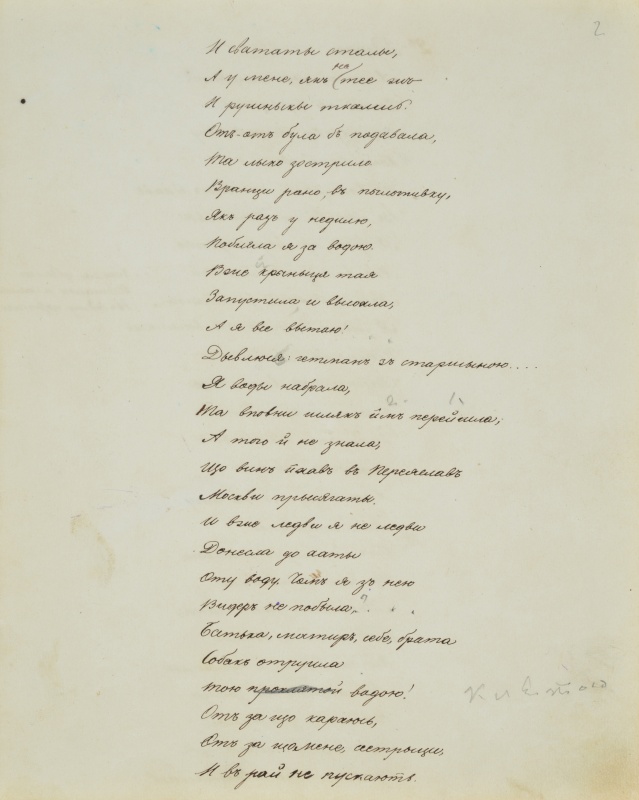 2
И свататы сталы,
А у мене, якъ на тее
И рушныкы ткались.
Отъ-отъ була бъ подавала,
Та лыхо зострило.
Вранци рано, въ пылыпивку,
Якъ разъ у недилю,
Побигла я за водою.
Вже крыныця тая
Запустила и высохла,
А я все витаю!
Дывлюся: гетманъ зъ старшыною....
Я воды набрала,
Та вповни шляхъ имъ перейшла;
А того й не знала,
Що винъ ихавъ въ Переяславъ
Москви прысягаты.
И вже ледви я не ледви
Донесла до хаты
Оту воду. Чомъ я зъ нею
Видеръ не побыла,?
Батька, матиръ, себе, брата
Собакъ отруила
Тою проклятой водою!
Отъ за що караюсь,
Отъ за що мене, сестрыци,
И въ рай не пускають.